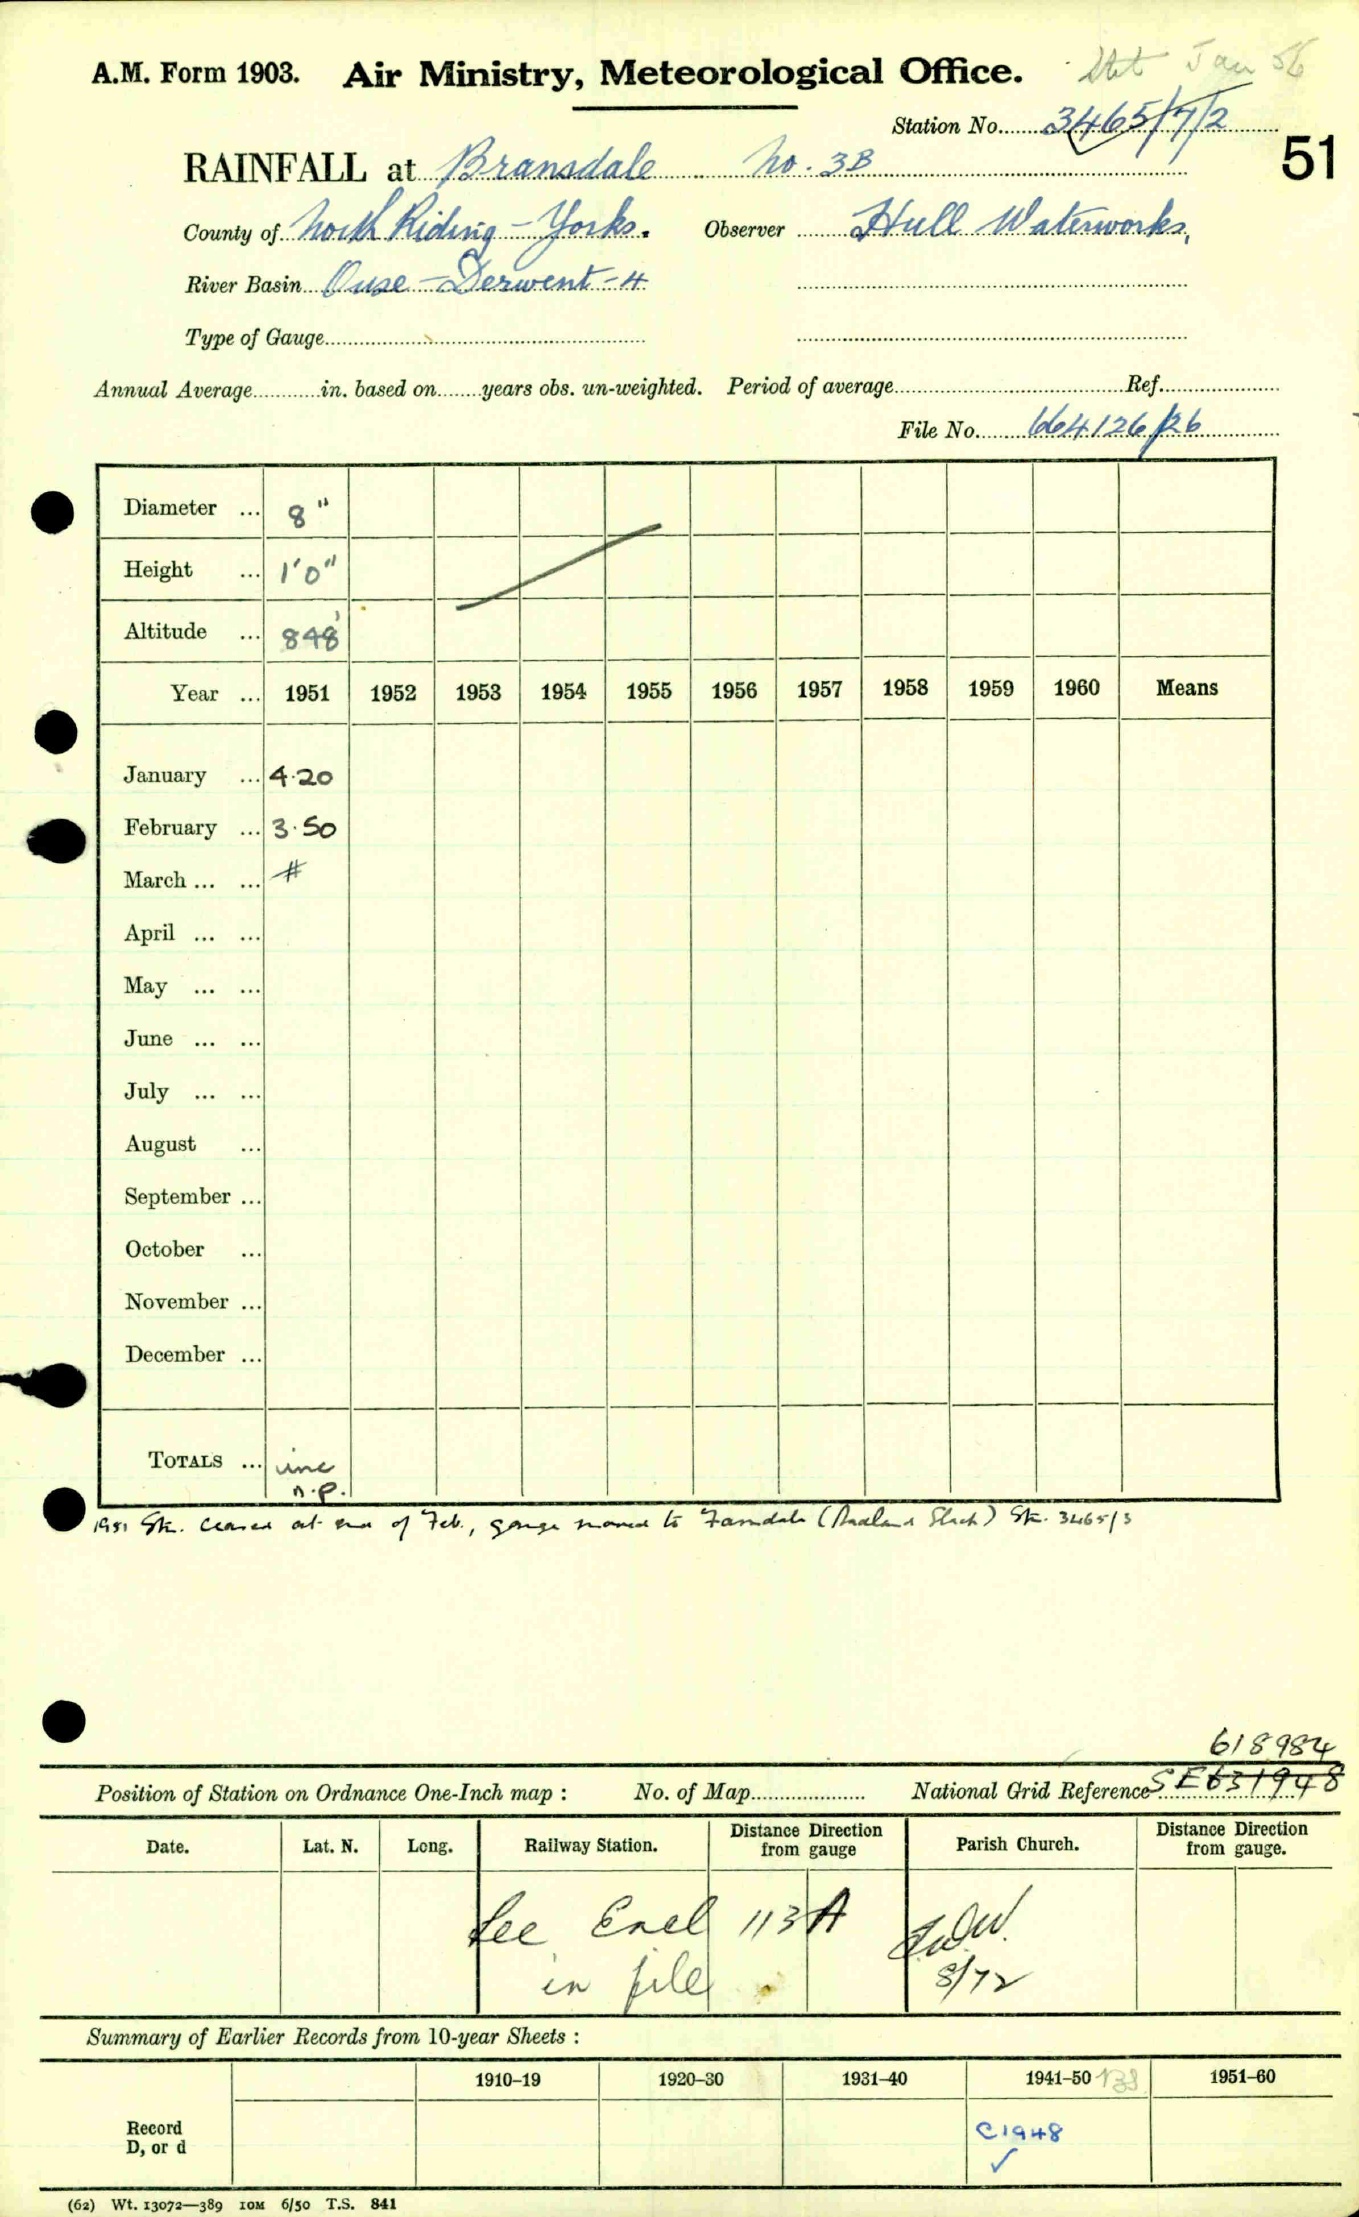 A.M. Form 1903. Air Ministry, Meteorological Office. Jan 56
Station No. 3465/7/2
51
RAINFALL at Bransdale No. 3B
County of North Riding - Yorks. Observer Hull Waterworks,
River Basin Ouse - Derwent - 4
Type of Gauge
Annual Average in. based on years obs. un-weighted. Period of average Ref.
File No. 664126/26
Diameter ... 8"
Height ... 1'0"
Altitude ... 848'
Year ... 1951 1952 1953 1954 1955 1956 1957 1958 1959 1960 Means
January ... 4.20
February ... 3.50
March ... ... #
April ... ...
May ... ...
June ... ...
July ... ...
August ...
September ...
October ...
November ...
December ...
TOTALS ... inc
n.p.
1951 Stn. ceased at end of Feb., gauge moved to Farndale ( ) Stn. 3465/3
618984
Position of Station on Ordnance One-Inch map : No. of Map National Grid Reference SE631948
Date. Lat. N. Long. Railway Station. Distance Direction from gauge Parish Church. Distance Direction from gauge.
See Encl 113A
in file 8/72
Summary of Earlier Records from 10-year Sheets :
1910-19 1920-30 1931-40 1941-50 1951-60
Record
D, or d
C1948 ✓
(62) Wt. 13072—389 10M 6/50 T.S. 841